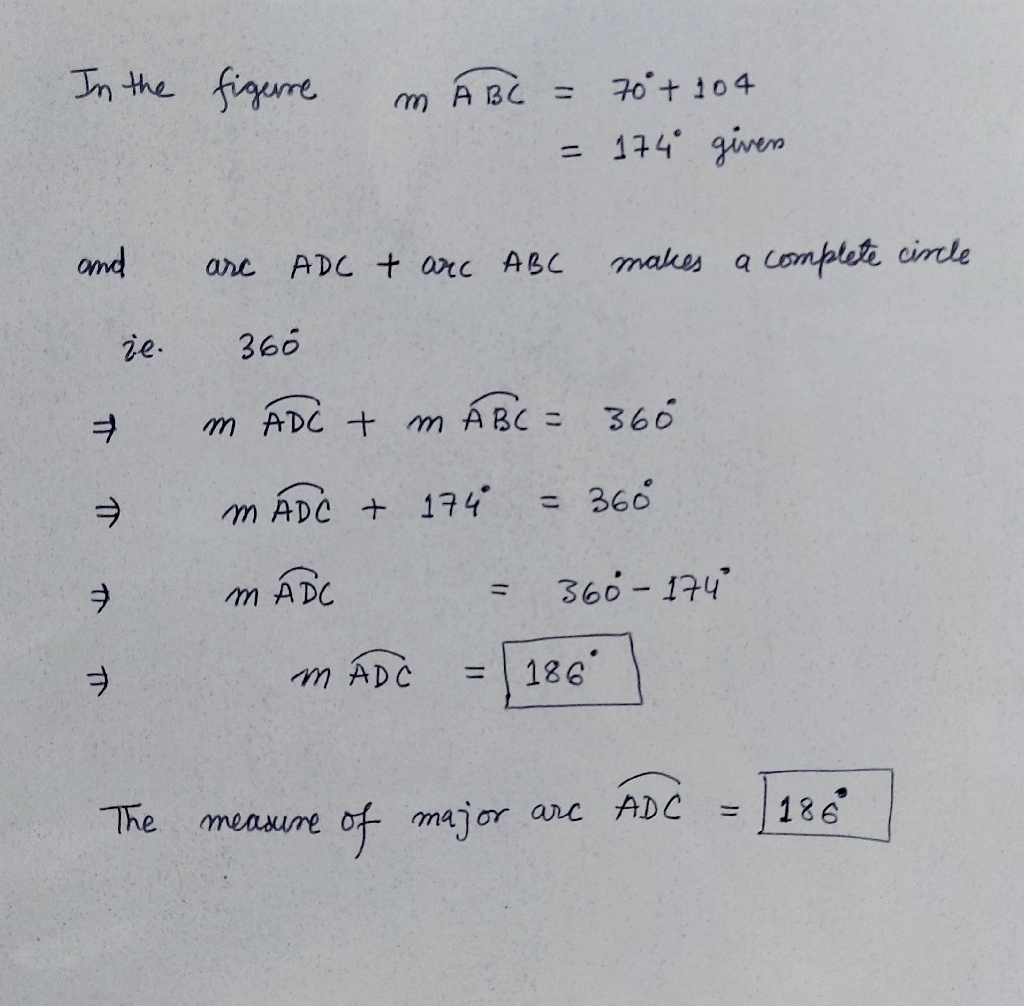 In the figure m ABC = 70° + 104
= 174° given
and arc ADC + arc ABC makes a complete circle
ie. 360°
⇒ m ADC + m ABC = 360°
⇒ m ADC + 174° = 360°
⇒ m ADC = 360° - 174°
⇒ m ADC = 186°
The measure of major arc ADC = 186°